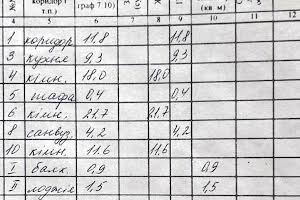 коридор і т.п.) граф 7 10) (кв м)
4 5 6 7 8 9 10 11 12
1 коридор 11,8 11,8
3 кухня 9,3 9,3
4 кімн. 18,0 18,0
5 шафа 0,4 0,4
6 кімн. 21,7 21,7
8 санвуз. 4,2 4,2
10 кімн. 11,6 11,6
I балк. 0,9 0,9
II лоджія 1,5 1,5